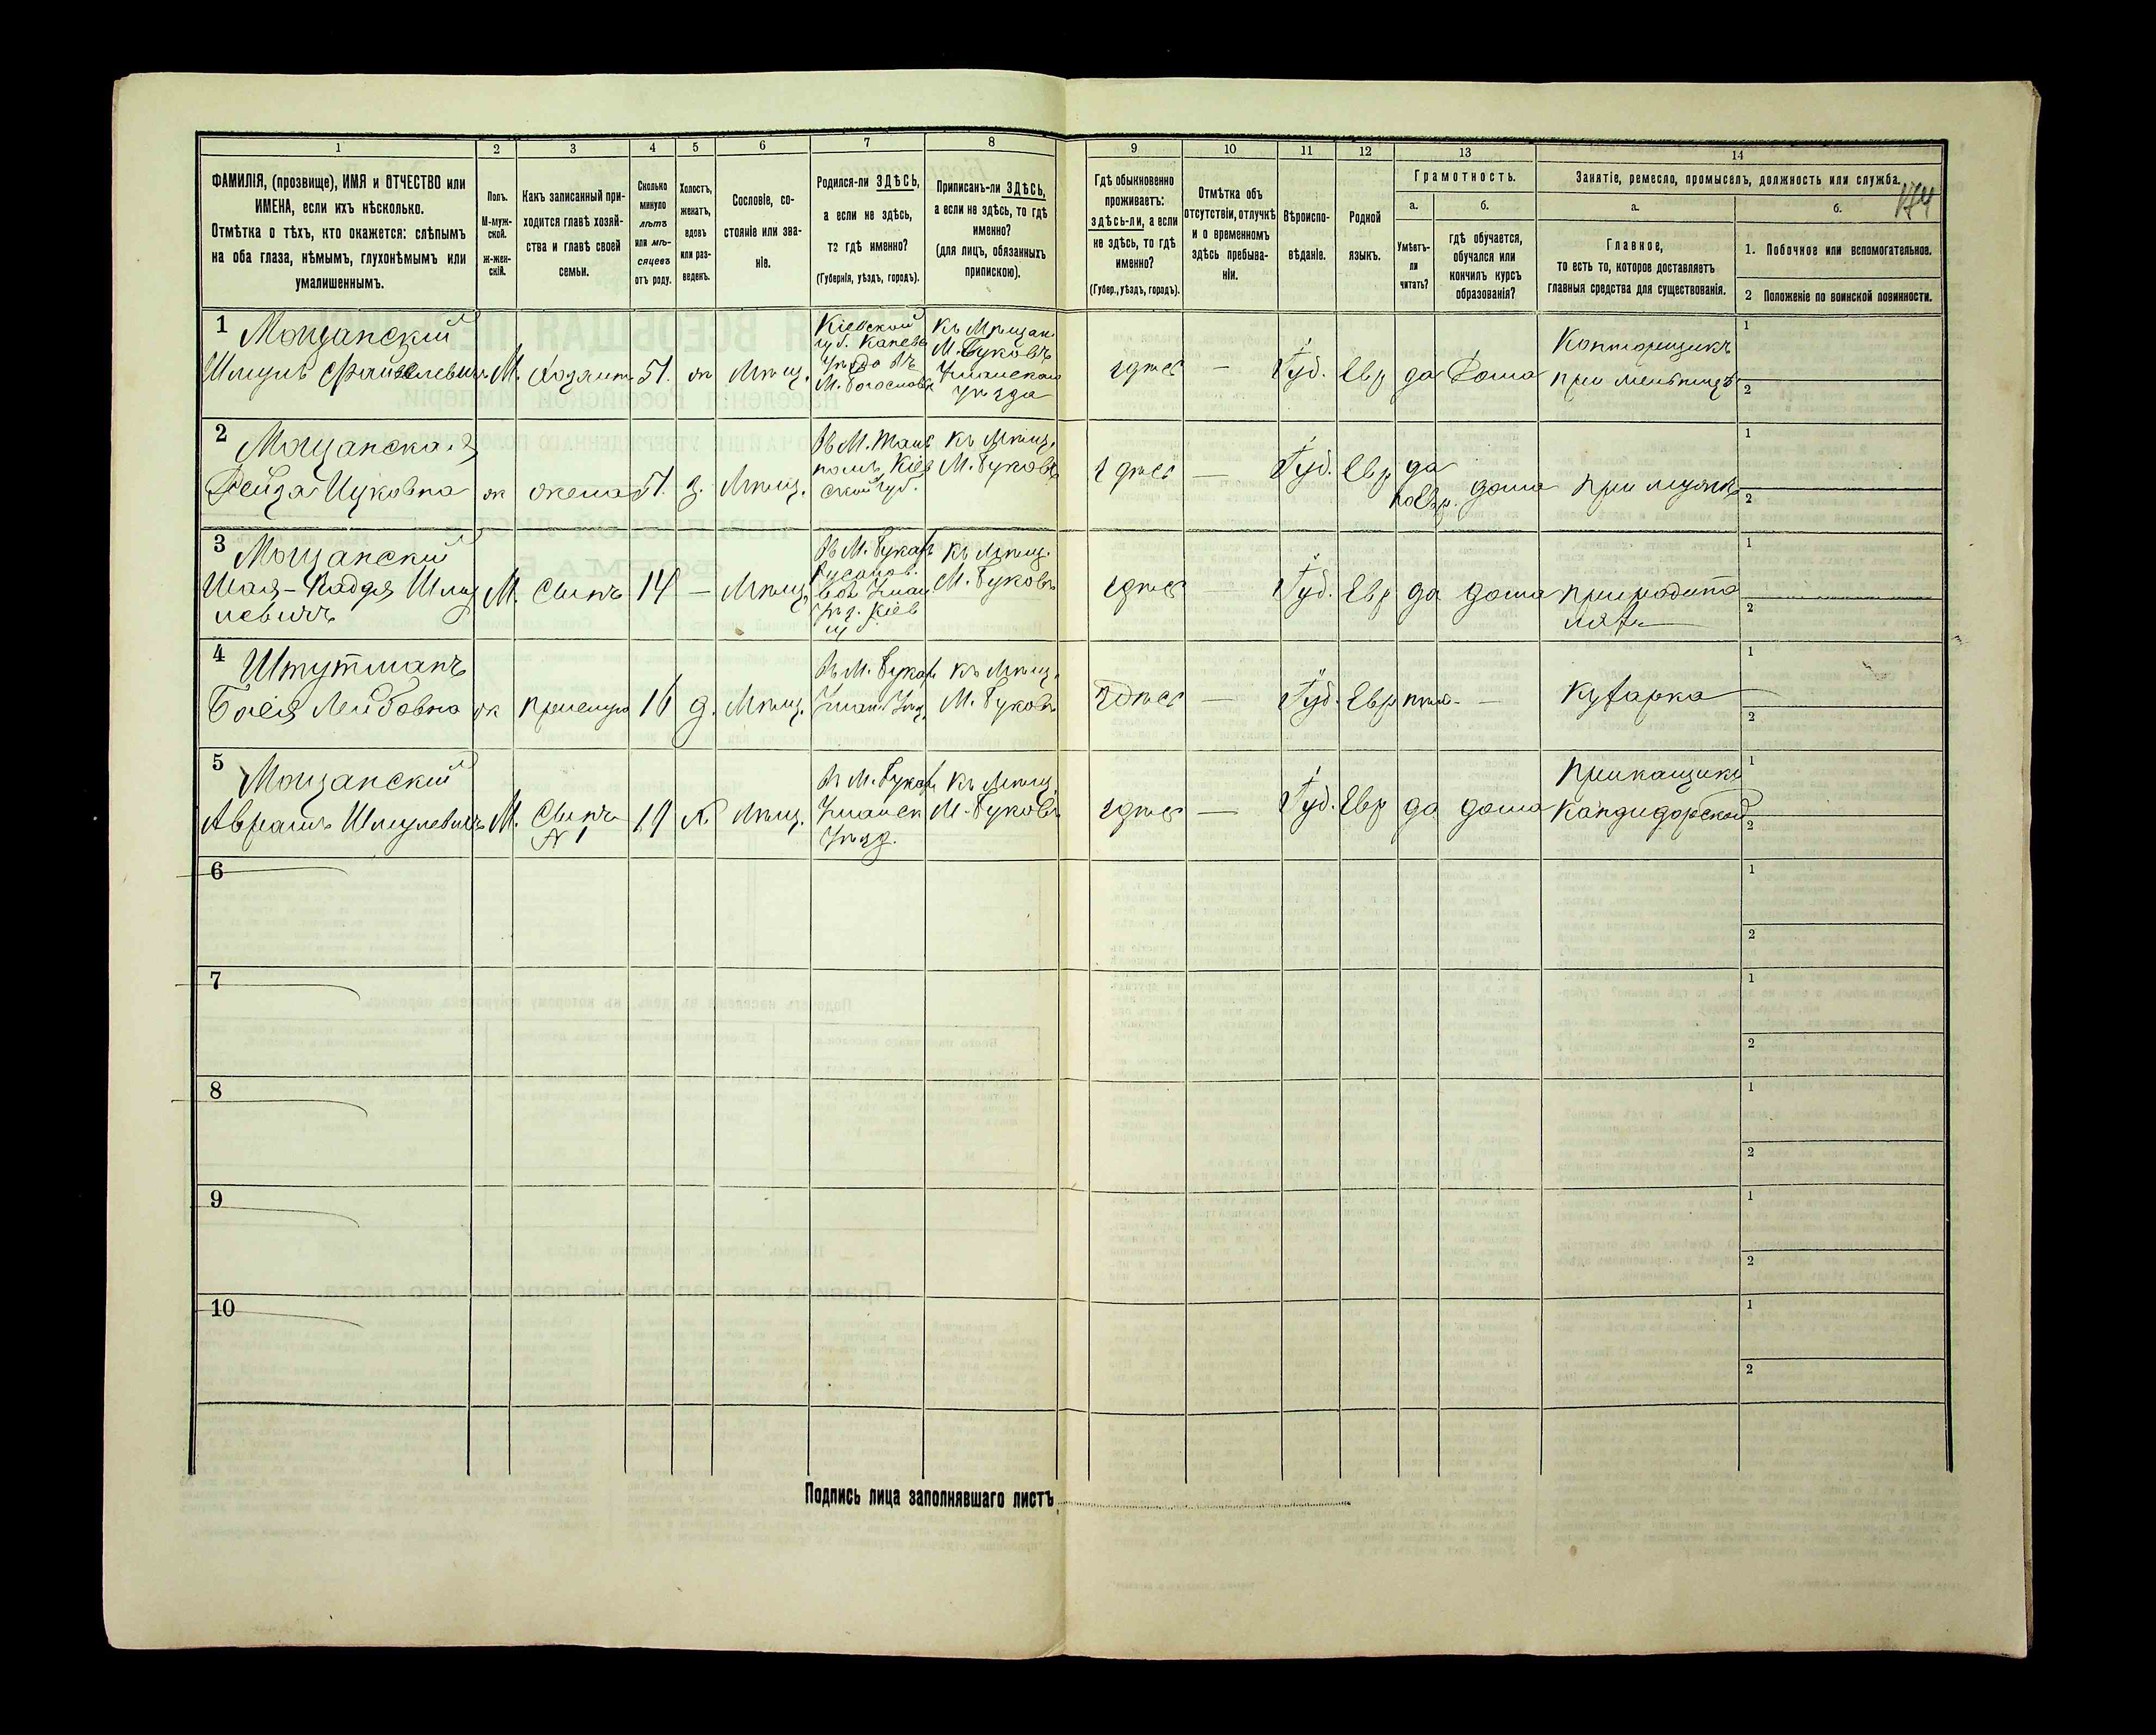 1 2 3 4 5 6 7 8 9 10 11 12 13 14
ФАМИЛІЯ, (прозвище), ИМЯ и ОТЧЕСТВО или
ИМЕНА, если ихъ нѣсколько.
Отмѣтка о тѣхъ, кто окажется: слѣпымъ
на оба глаза, нѣмымъ, глухонѣмымъ или
умалишеннымъ.
Полъ.
М-муж-
ской.
ж-жен-
скій.
Какъ записанный при-
ходится главѣ хозяй-
ства и главѣ своей
семьи.
Сколько
минуло
лѣтъ
или мѣ-
сяцевъ
отъ роду.
Холостъ,
женатъ,
вдовъ
или раз-
веденъ.
Сословіе, со-
стояніе или зва-
ніе.
Родился-ли ЗДѢСЬ,
а если не здѣсь,
то гдѣ именно?
(Губернія, уѣздъ, городъ).
Приписанъ-ли ЗДѢСЬ,
а если не здѣсь, то гдѣ
именно?
(для лицъ, обязанныхъ
припискою).
Гдѣ обыкновенно
проживаетъ:
здѣсь-ли, а если
не здѣсь, то гдѣ
именно?
(Губер., уѣздъ, городъ).
Отмѣтка объ
отсутствіи, отлучкѣ
и о временномъ
здѣсь пребыва-
ніи.
Вѣроиспо-
вѣданіе.
Родной
языкъ.
Грамотность.
а.
Умѣетъ-
ли
читать?
б.
гдѣ обучается,
обучался или
кончилъ курсъ
образованія?
Занятіе, ремесло, промыселъ, должность или служба.
174
а.
Главное,
то есть то, которое доставляетъ
главныя средства для существованія.
б.
1. Побочное или вспомогательное.
2 Положеніе по воинской повинности.
1 Мощанский
Шмулъ Файвелевичъ М. Хозяинъ 51. ж Мѣщ.
Кіевской
губ. Канев
Уѣзда въ
М. Богослов
Къ Мѣщан.
М. Буковъ
Уманскаго
уѣзда
здѣсь — Іуд. Евр да Дома
Конторщикъ
при мельницѣ
1
2
2 Мощанская
Рейза Ицковна ж жена 51. з. Мѣщ.
Въ М. Тага
Кіев
ской губ.
Къ Мѣщ.
М. Буковъ
здѣсь — Іуд. Евр да
по Евр. дома при мужѣ
1
2
3 Мощанский
Шая- Шму
левичъ М. Сынъ 14 — Мѣщ.
Въ М. Букахъ
Русалов.
вол. Уман
Уѣз. Кіев
губ.
Къ Мѣщ.
М. Буковъ
здѣсь — Іуд. Евр да дома при родите
ляхъ
1
2
4 Штутманъ
Бася Лейбовна ж прислуга 16 д. Мѣщ.
Въ М. Букахъ
Уман. Уѣз.
Къ Мѣщ.
М. Буковъ
здѣсь — Іуд. Евр нѣтъ — Кухарка
1
2
5 Мощанский
Авраамъ Шмулевичъ М. Сынъ
№ 1 19 Х. Мѣщ.
Въ М. Букахъ
Уманск
Уѣзд.
Къ Мѣщ.
М. Буковъ
здѣсь — Іуд. Евр да дома
Прикащикъ
Кандидорской
1
2
6
1
2
7
1
2
8
1
2
9
1
2
10
1
2
Подпись лица заполнявшаго листъ